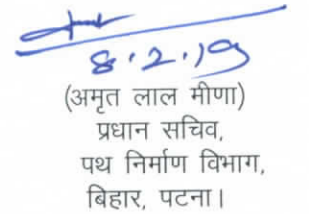 8.2.19
(अमृत लाल मीणा)
प्रधान सचिव,
पथ निर्माण विभाग,
बिहार, पटना।